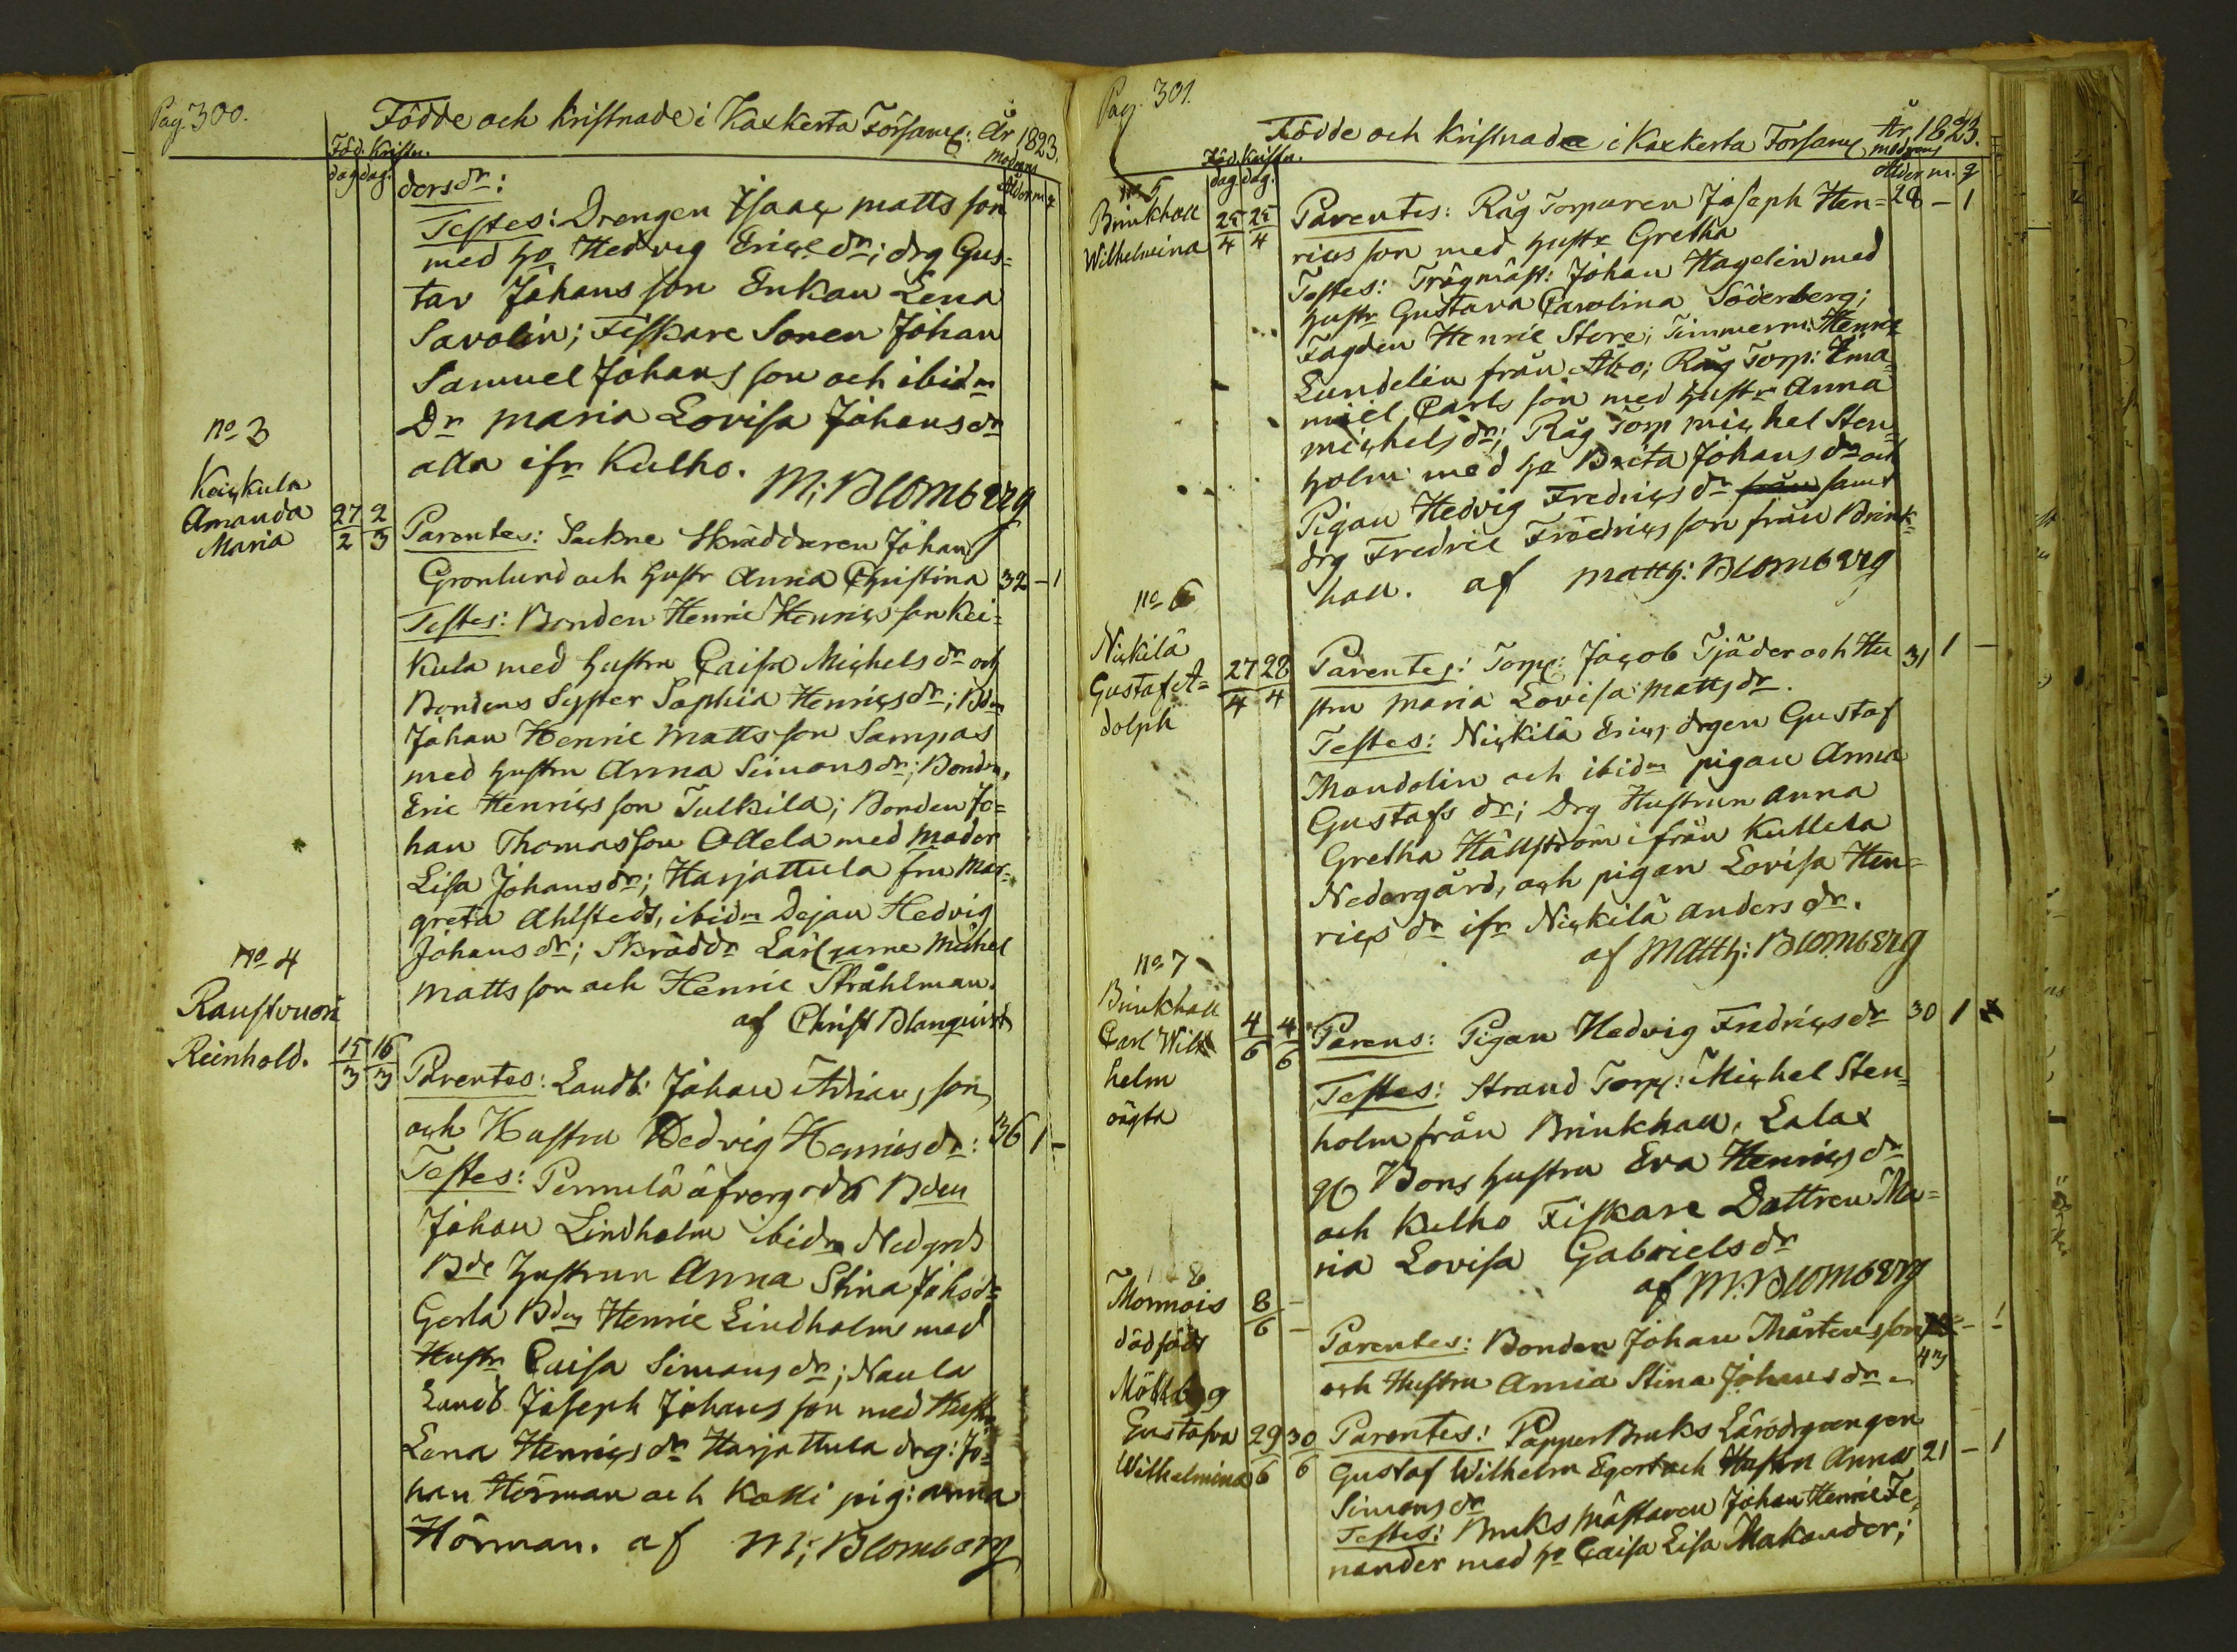 Pag. 300.
Födde och kristnade i Kaxkerta Församl: År 1823.
Föd. Kristn.
dag dag.
Modrens
Ålder m q
dersdr:
Testes: Drengen Isaac matts son
med ho Hedvig Ericsdr; drg Gus=
tav Johans son Enkan Lena
Savolin; Fiskare Sonen Johan
Samuel Johans son och ibidm
Dr Maria Lovisa Johansdr
alla ifr Kulho. M: Blomberg
No 3
Keickula
Amanda
Maria
27 2
2 3
Parentes: Sockne Skräddaren Johan
Gronlund och hustr Anna Christina 32 - 1
Testes: Bonden Henric Henrics son Kei=
kula med hustru Caisa Michels dr och
Bondens Syster Sophia Henricsdr; Bdn
Johan Henric Matts son Sampas
med hustru Anna Simonsdr; Bonden
Eric Henrics son Tulkila; Bonden Jo=
han Thomasson Ollela med moder
Lisa Johansdr; Harjattula fru Mar=
greta Ahlstedt, ibidm Dejan Hedvig
Johansdr; Skrädd Lärlgarne Michel
matts son och Henric Stråhlman.
af Christ Blanquist
No 4
Raustvuori
Reinhold.
15 16
3 3
Parentes: Landb: Johan Adrians son
och Hustru Hedvig Henricsdr: 36 1 -
Testes: Pennilä äfvergrds Bden
Johan Lindholm ibidm Nedgrds
Bde hustrun Anna Stina Johsdr
Gerla Bden Henric Lindholm med
Hustr Caisa Simonsdr; Naula
Landb Joseph Johans son med Hustr
Lena Henricsdr Harjattula drg: Jo=
han Hörman och Kolli pig: anna
Hörman. af M: Blomberg
Pag. 301.
Födde och kristnade i Kaxkerta Forsaml År 1823.
Föd. Kristn.
dag. dag.
modrens
Ålder m. q
No 5
Brinkhall
Wilhelmina
25 25
4 4
Parentes: Råg Torparen Joseph Hen= 28 - 1
rics son med hustr Gretha
Testes: Trägmäst: Johan Hagelin med
hustr Gustava Carolina Söderberg;
Fogden Henric Store; Timmerm: Henric
Lundelin från Åbo; Råg Torp: Ema
niel Carls son med hustr Anna
michelsdr; Råg Torp michel Sten=
holm med ho Breta Johansdr och
Pigan Hedvig Fredricsdr från samt
drg Fredric Frödrics son från Brink=
hall. af Matth: Blomberg
No 6
Nickilä
Gustaf A=
dolph
27 28
4 4
Parentes: Torp: Jacob Tjäder och Hu 31 1 -
stru Maria Lovisa Mattsdr.
Testes: Nickilä Erics drgen Gustaf
Mandolin och ibidm pigan Anna
Gustafs dr; Drg Hustrun Anna
Gretha Hällström ifrån Kullela
Nedergård, och pigan Lovisa Hen=
rics dr ifr Nickilä andersdr.
af Matth: Blomberg
No 7
Brinkhall
Carl Wil
helm
oägta
4 4
6 6
Parens: Pigan Hedvig Fredricsdr 30 1
Testes: Strand Torp: Michel Sten=
holm från Brinkhall, Lalax
Bons hustru Eva Henricsdr
och Kulho Fiskare Dottren Ma=
ria Lovisa Gabrielsdr
af M. Blomberg
8
Monnois
dödfödt
8 -
6 -
Parentes: Bonden Johan Mårtens son - 1
och Hustru Anna Stina Johansdr
Möllberg
Gustafva
Wilhelmina
29 30
6 6
Parentes: Papper Bruks Lärodrgengen
Gustaf Wilhelm Egert och Hustru Anna 21 - 1
Simonsdr
Testes: Bruks mästaren Johan Henric Te
nander med ho Caisa Lisa Makander;